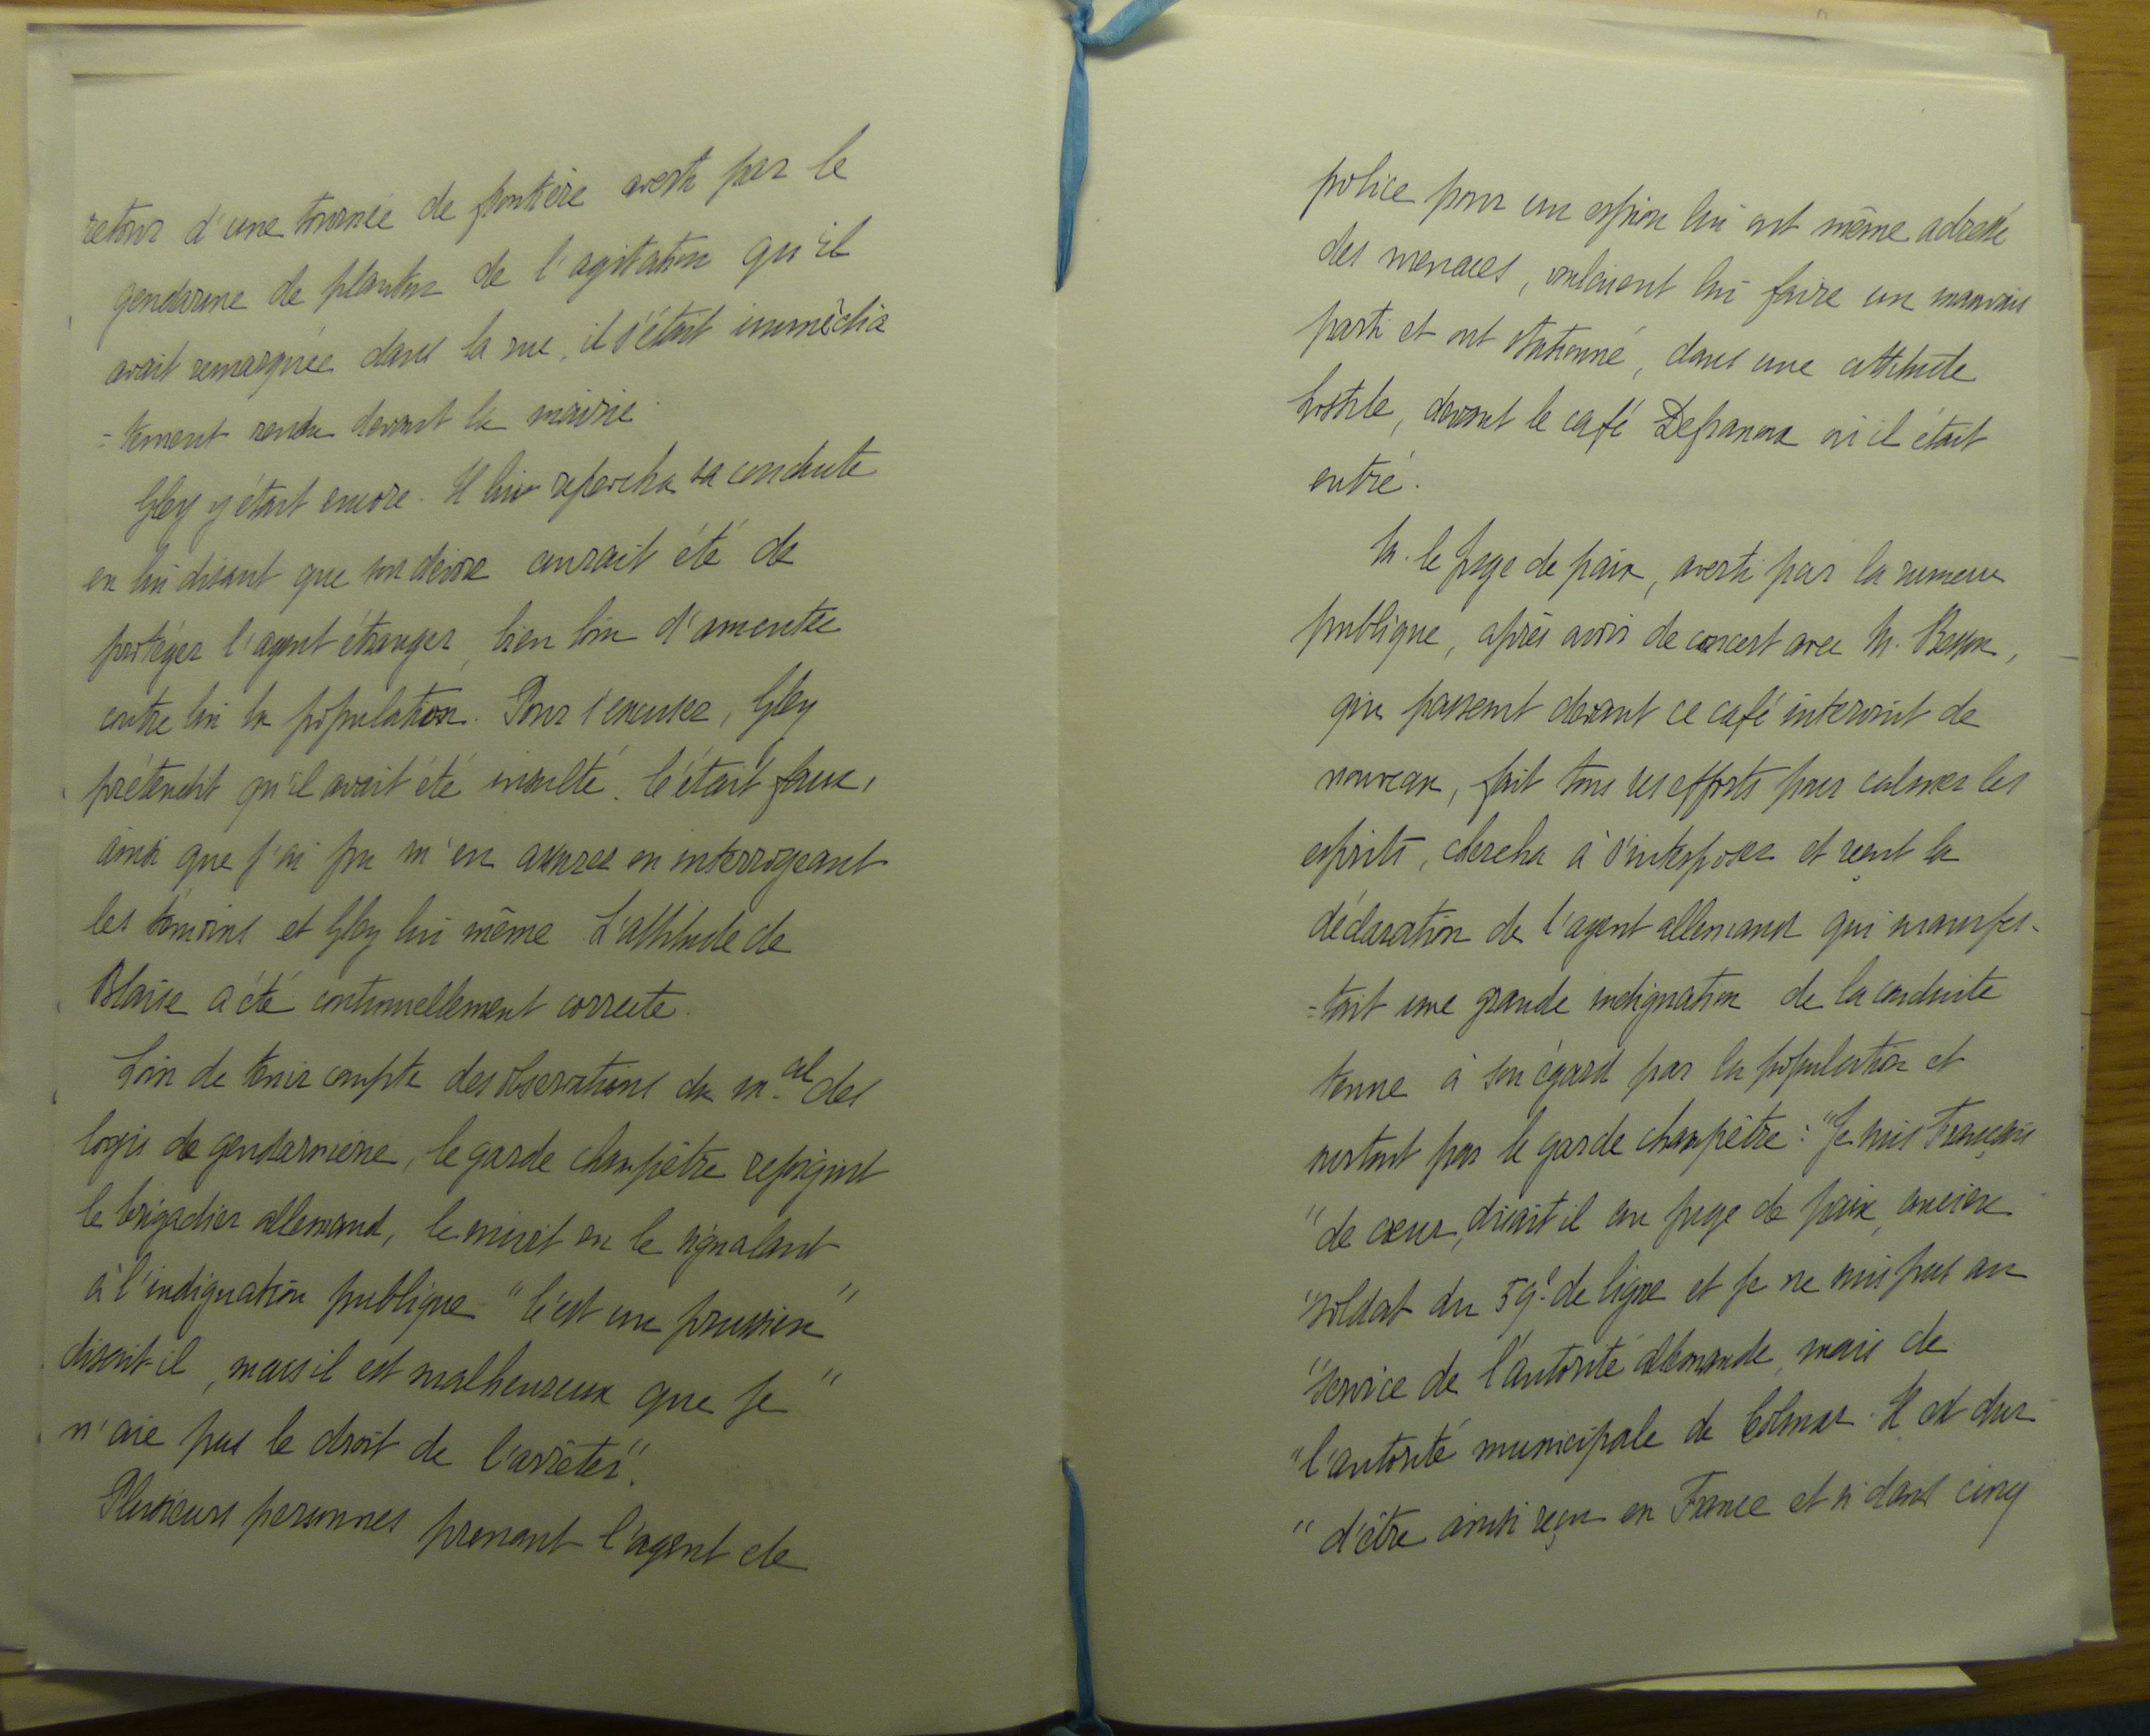 retour d'une tournée de frontière averti par le
gendarme de planton de l'agitation qu'il
avait remarquée dans la rue, il s'était immédia
=tement rendu devant la mairie.
Gley y était encore. Il lui reprocha sa conduite
en lui disant que son devoir aurait été de
protéger l'agent étranger, bien loin d'ameuter
contre lui la population. Pour s'excuser, Gley
prétendit qu'il avait été insulté. C'était faux,
ainsi que j'ai pu m'en assurer en interrogeant
les témoins et Gley lui même. L'attitude de
Blaise a été continuellement correcte.
Loin de tenir compte des observations du m.al des
logis de gendarmerie, le garde champêtre rejoignit
le brigadier allemand, le suivit en le signalant
à l'indignation publique "C'est un prussien"
disait-il, mais il est malheureux que je "
n'aie pas le droit de l'arrêter".
Plusieurs personnes prenant l'agent de
police pour un espion lui ont même adressé
des menaces, voulaient lui faire un mauvais
parti et ont stationné, dans une attitude
hostile, devant le café Defranoux où il était
entré.
M. le juge de paix, averti par la rumeur
publique, après avoir de concert avec M. Besson,
qui passant devant ce café intervint de
nouveau, fait tous ses efforts pour calmer les
esprits, chercha à s'interposer et reçut la
déclaration de l'agent allemand qui manifes-
=tait une grande indignation de la conduite
tenue à son égard par la population et
surtout par le garde champêtre : "Je suis Français
"de cœur, disait il au juge de paix, ancien
"soldat du 59e de ligne et je ne suis pas au
"service de l'autorité allemande, mais de
"l'autorité municipale de Colmar. Il est dur
"d'être ainsi reçu en France et si dans cinq